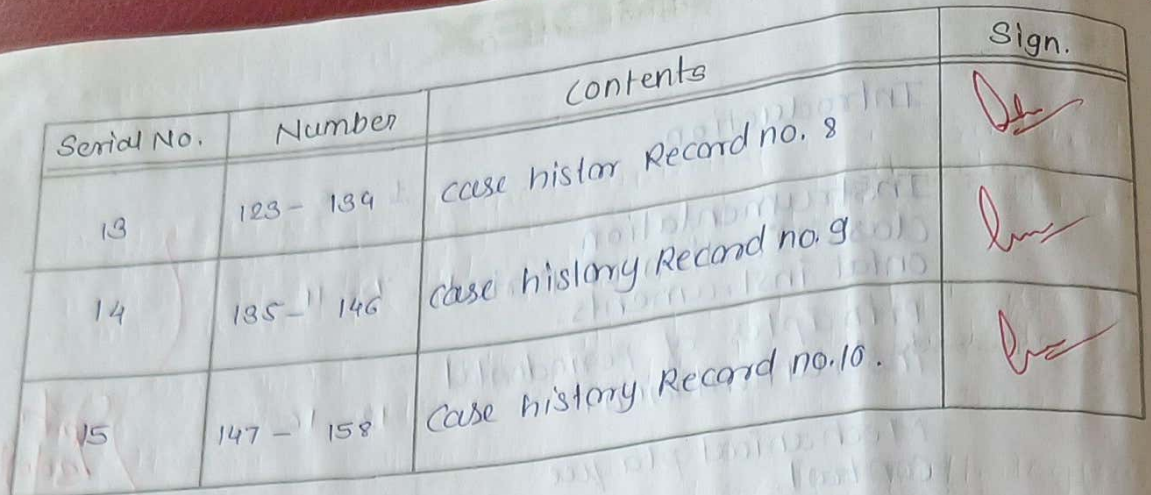 Serial No. Number Contents Sign.
13 123 - 134 case histor Record no. 8
14 135 - 146 case history Record no. 9
15 147 - 158 Case history Record no. 10.